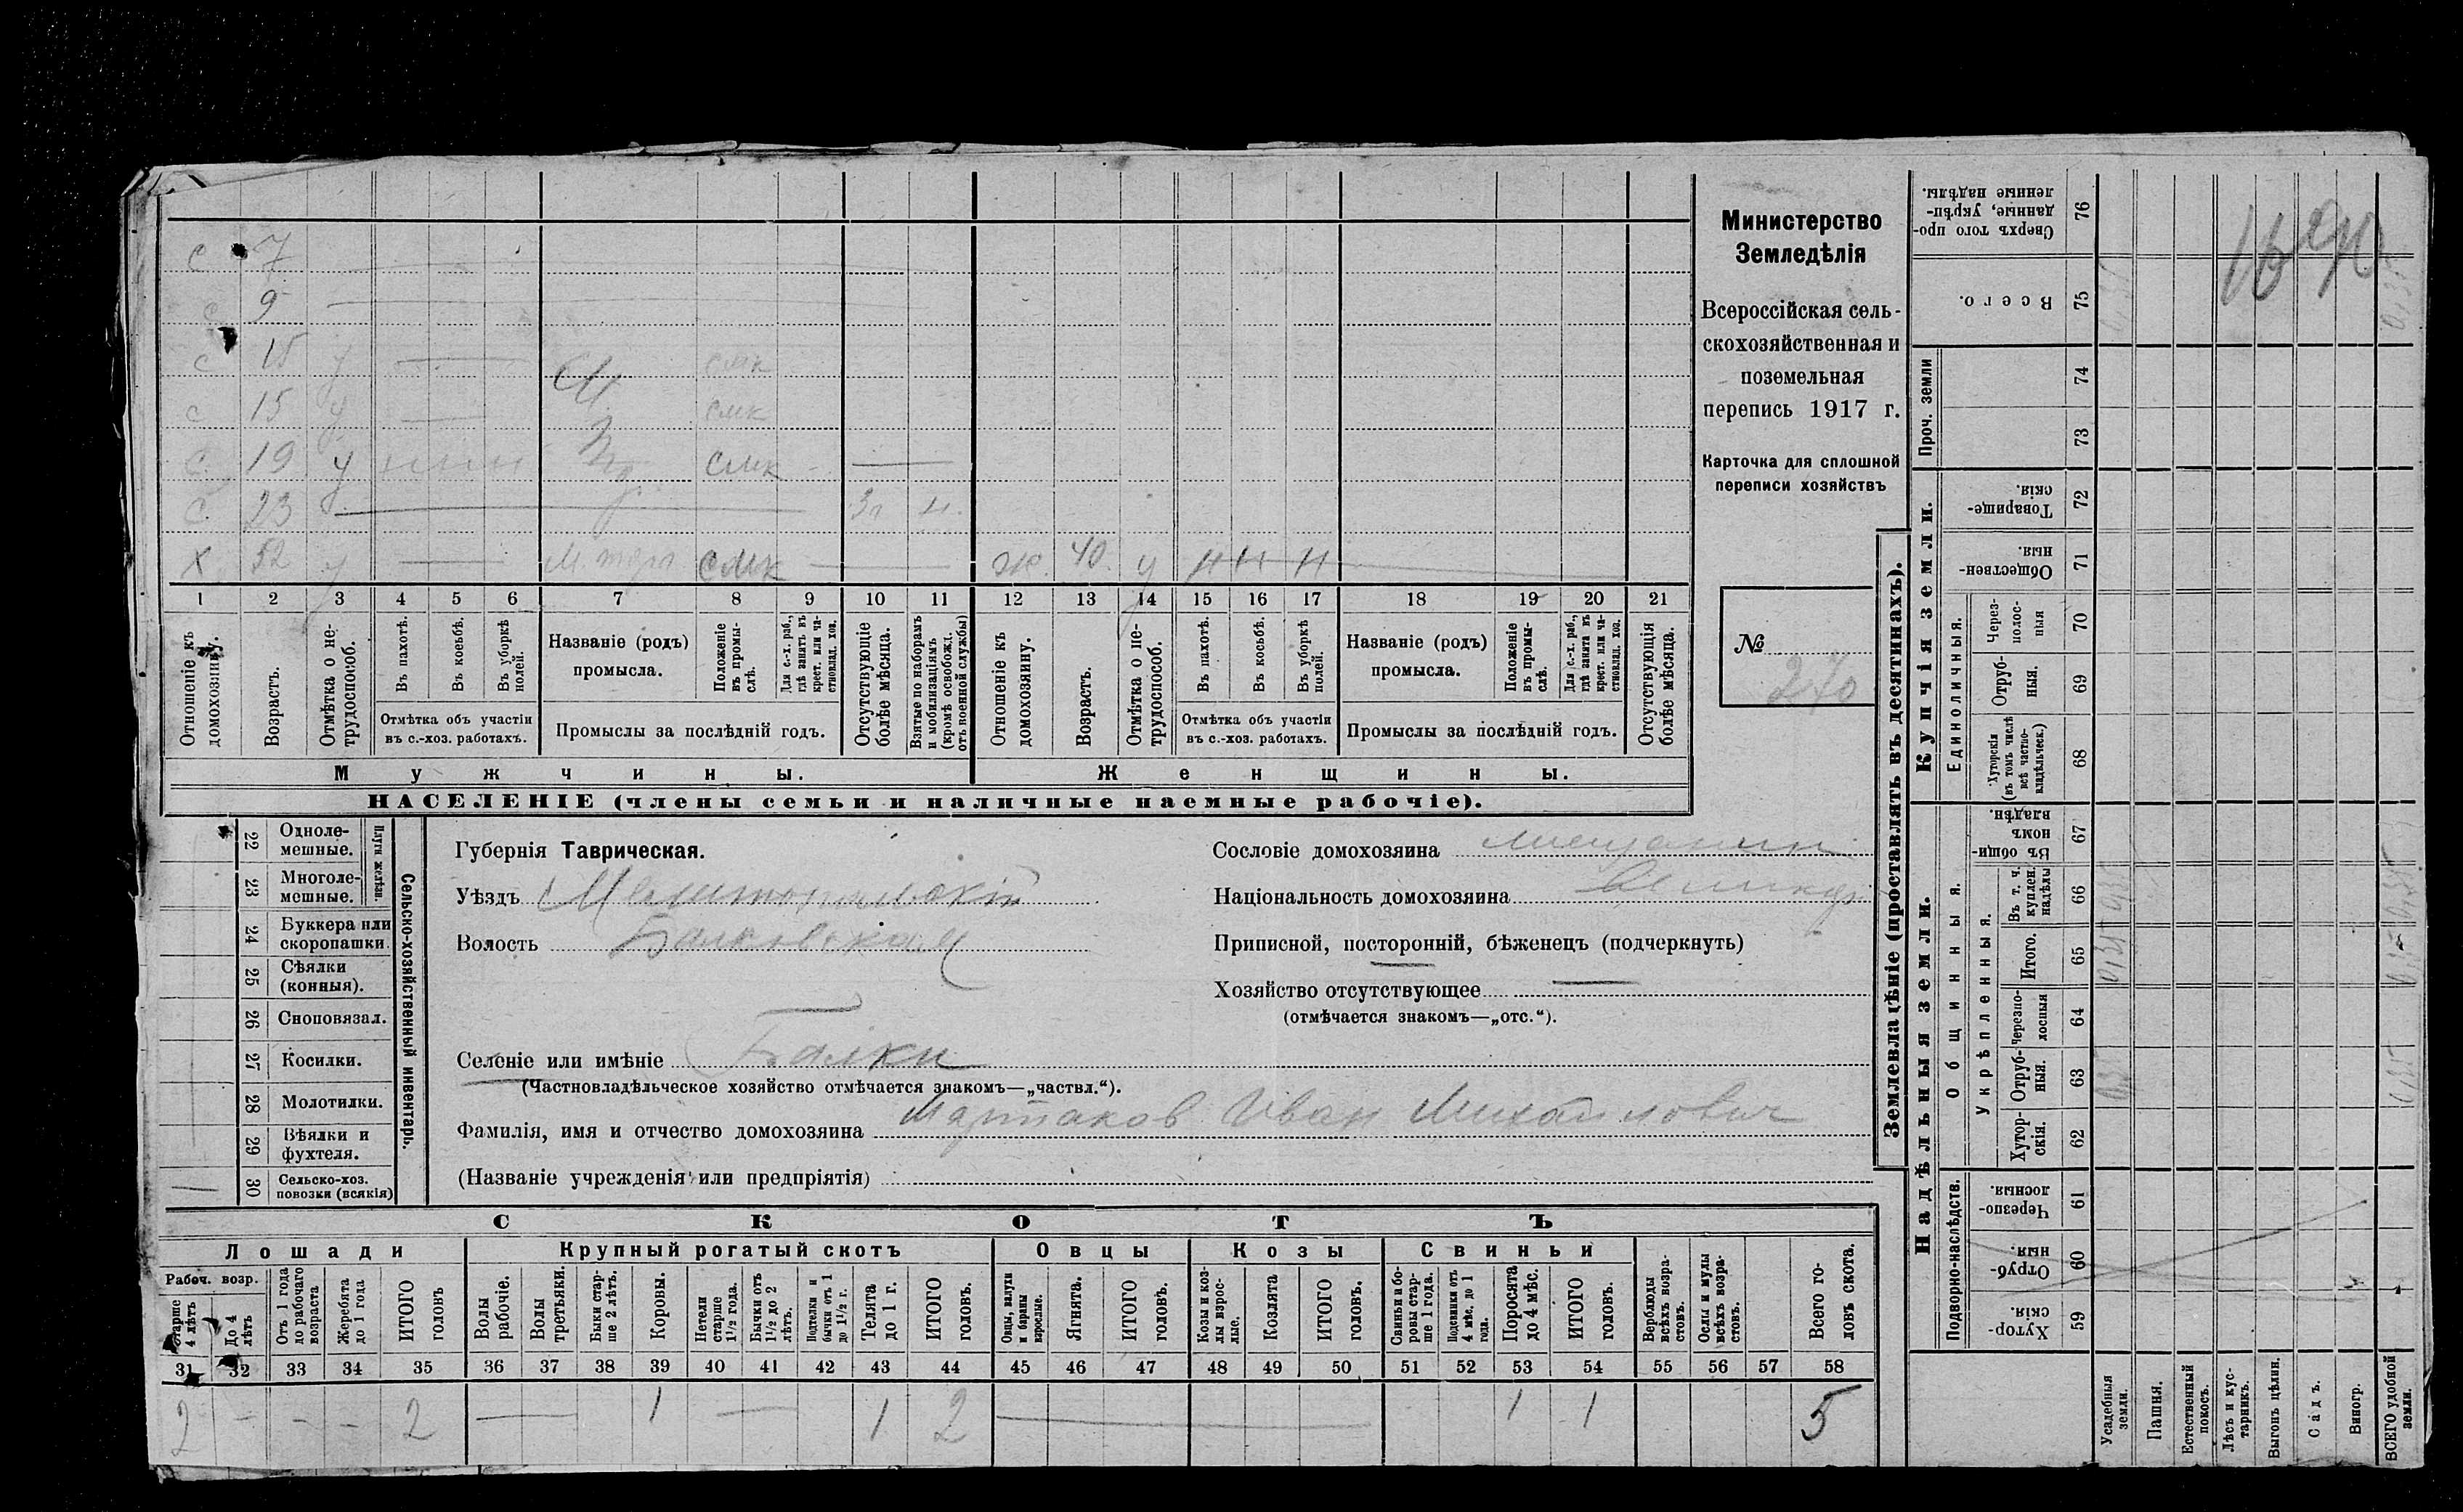 с 7
с 9
с 15 у смк
с 15 у смк
с 19 у н н н смк
с 23 Зп н.
х 52 у М. торг смк ж. 40. у н н н
1 2 3 4 5 6 7 8 9 10 11 12 13 14 15 16 17 18 19 20 21
Отношеніе къ домохозяину.
Возрастъ.
Отмѣтка о не-трудоспособ.
Въ пахотѣ.
Въ косьбѣ.
Въ уборкѣ полей.
Отмѣтка объ участіи въ с.-хоз. работахъ.
Названіе (родъ) промысла.
Положеніе въ промы-слѣ.
Для с.-х. раб., гдѣ занятъ въ крест. или ча-стновлад. хоз.
Промыслы за послѣдній годъ.
Отсутствующіе болѣе мѣсяца.
Взятые по наборамъ и мобилизаціямъ (кромѣ освобожд. отъ военной службы)
Отношеніе къ домохозяину.
Возрастъ.
Отмѣтка о не-трудоспособ.
Въ пахотѣ.
Въ косьбѣ.
Въ уборкѣ полей.
Отмѣтка объ участіи въ с.-хоз. работахъ.
Названіе (родъ) промысла.
Положеніе въ промы-слѣ.
Для с.-х. раб., гдѣ занятъ въ крест. или ча-стновлад. хоз.
Промыслы за послѣдній годъ.
Отсутствующія болѣе мѣсяца.
Мужчины. Женщины.
НАСЕЛЕНІЕ (члены семьи и наличные наемные рабочіе).
Министерство
Земледѣлія
Всероссійская сель-
скохозяйственная и
поземельная
перепись 1917 г.
Карточка для сплошной
переписи хозяйствъ
№
270
22 Одноле-мешные.
23 Многоле-мешные.
Плуги желѣзн.
24 Буккера или скоропашки.
25 Сѣялки (конныя).
26 Сноповязал.
27 Косилки.
28 Молотилки.
29 Вѣялки и фухтеля.
30 Сельско-хоз. повозки (всякія)
1
Сельско-хозяйственный инвентарь.
Губернія Таврическая.
Уѣздъ Мелитопольскій
Волость Балковская
Селеніе или имѣніе Балки
(Частновладѣльческое хозяйство отмѣчается знакомъ—„частвл.“).
Фамилія, имя и отчество домохозяина Мартаков Иван Михайлович
(Названіе учрежденія или предпріятія)
Сословіе домохозяина мещанин
Національность домохозяина Великор.
Приписной, посторонній, бѣженецъ (подчеркнуть)
Хозяйство отсутствующее
(отмѣчается знакомъ—„отс.“).
СКОТЪ
Лошади Крупный рогатый скотъ Овцы Козы Свиньи
Рабоч. возр.
Старше 4 лѣтъ
До 4 лѣтъ
Отъ 1 года до рабочаго возраста
Жеребята до 1 года
ИТОГО головъ
Волы рабочіе.
Волы третьяки.
Быки стар-ше 2 лѣтъ.
Коровы.
Нетели старше 1½ года.
Бычки отъ 1½ до 2 лѣтъ.
Подтелки и бычки отъ 1 до 1½ г.
Телята до 1 г.
ИТОГО головъ.
Овцы, валухи и бараны взрослые.
Ягнята.
ИТОГО головъ.
Козы и коз-лы взрос-лые.
Козлята
ИТОГО головъ.
Свиньи и бо-ровы стар-ше 1 года.
Подсвинки отъ 4 мѣс. до 1 года.
Поросята до 4 мѣс.
ИТОГО головъ.
Верблюды всѣхъ возра-стовъ.
Ослы и мулы всѣхъ возра-стовъ.
Всего го-ловъ скота.
31 32 33 34 35 36 37 38 39 40 41 42 43 44 45 46 47 48 49 50 51 52 53 54 55 56 57 58
2 - - - 2 — 1 — 1 2 — 1 1 5
Землевладѣніе (проставлять въ десятинахъ).
Надѣльныя земли.
Купчія земли.
Проч. земли
Подворно-наслѣдств.
Общинныя.
Укрѣпленныя.
Единоличныя.
Сверхъ того про-данные, укрѣп-ленные надѣлы. 76
Всего. 75
74
73
Товарище-скія. 72
Обществен-ныя. 71
Через-полос-ныя 70
Отруб-ныя. 69
Хуторскія (въ томъ числѣ всѣ частно-владѣльческ.) 68
Въ общи-номъ владѣн. 67
Въ т. ч. куплен. надѣлы 66
Итого. 65
Черезпо-лосныя 64
Отруб-ныя. 63
Хутор-скія. 62
Черезпо-лосныя. 61
Отруб-ныя. 60
Хутор-скія. 59
Усадебныя земли.
Пашня.
Естественный покосъ.
Лѣсъ и кус-тарникъ.
Выгонъ цѣлин.
Садъ.
Виногр.
ВСЕГО удобной земли.